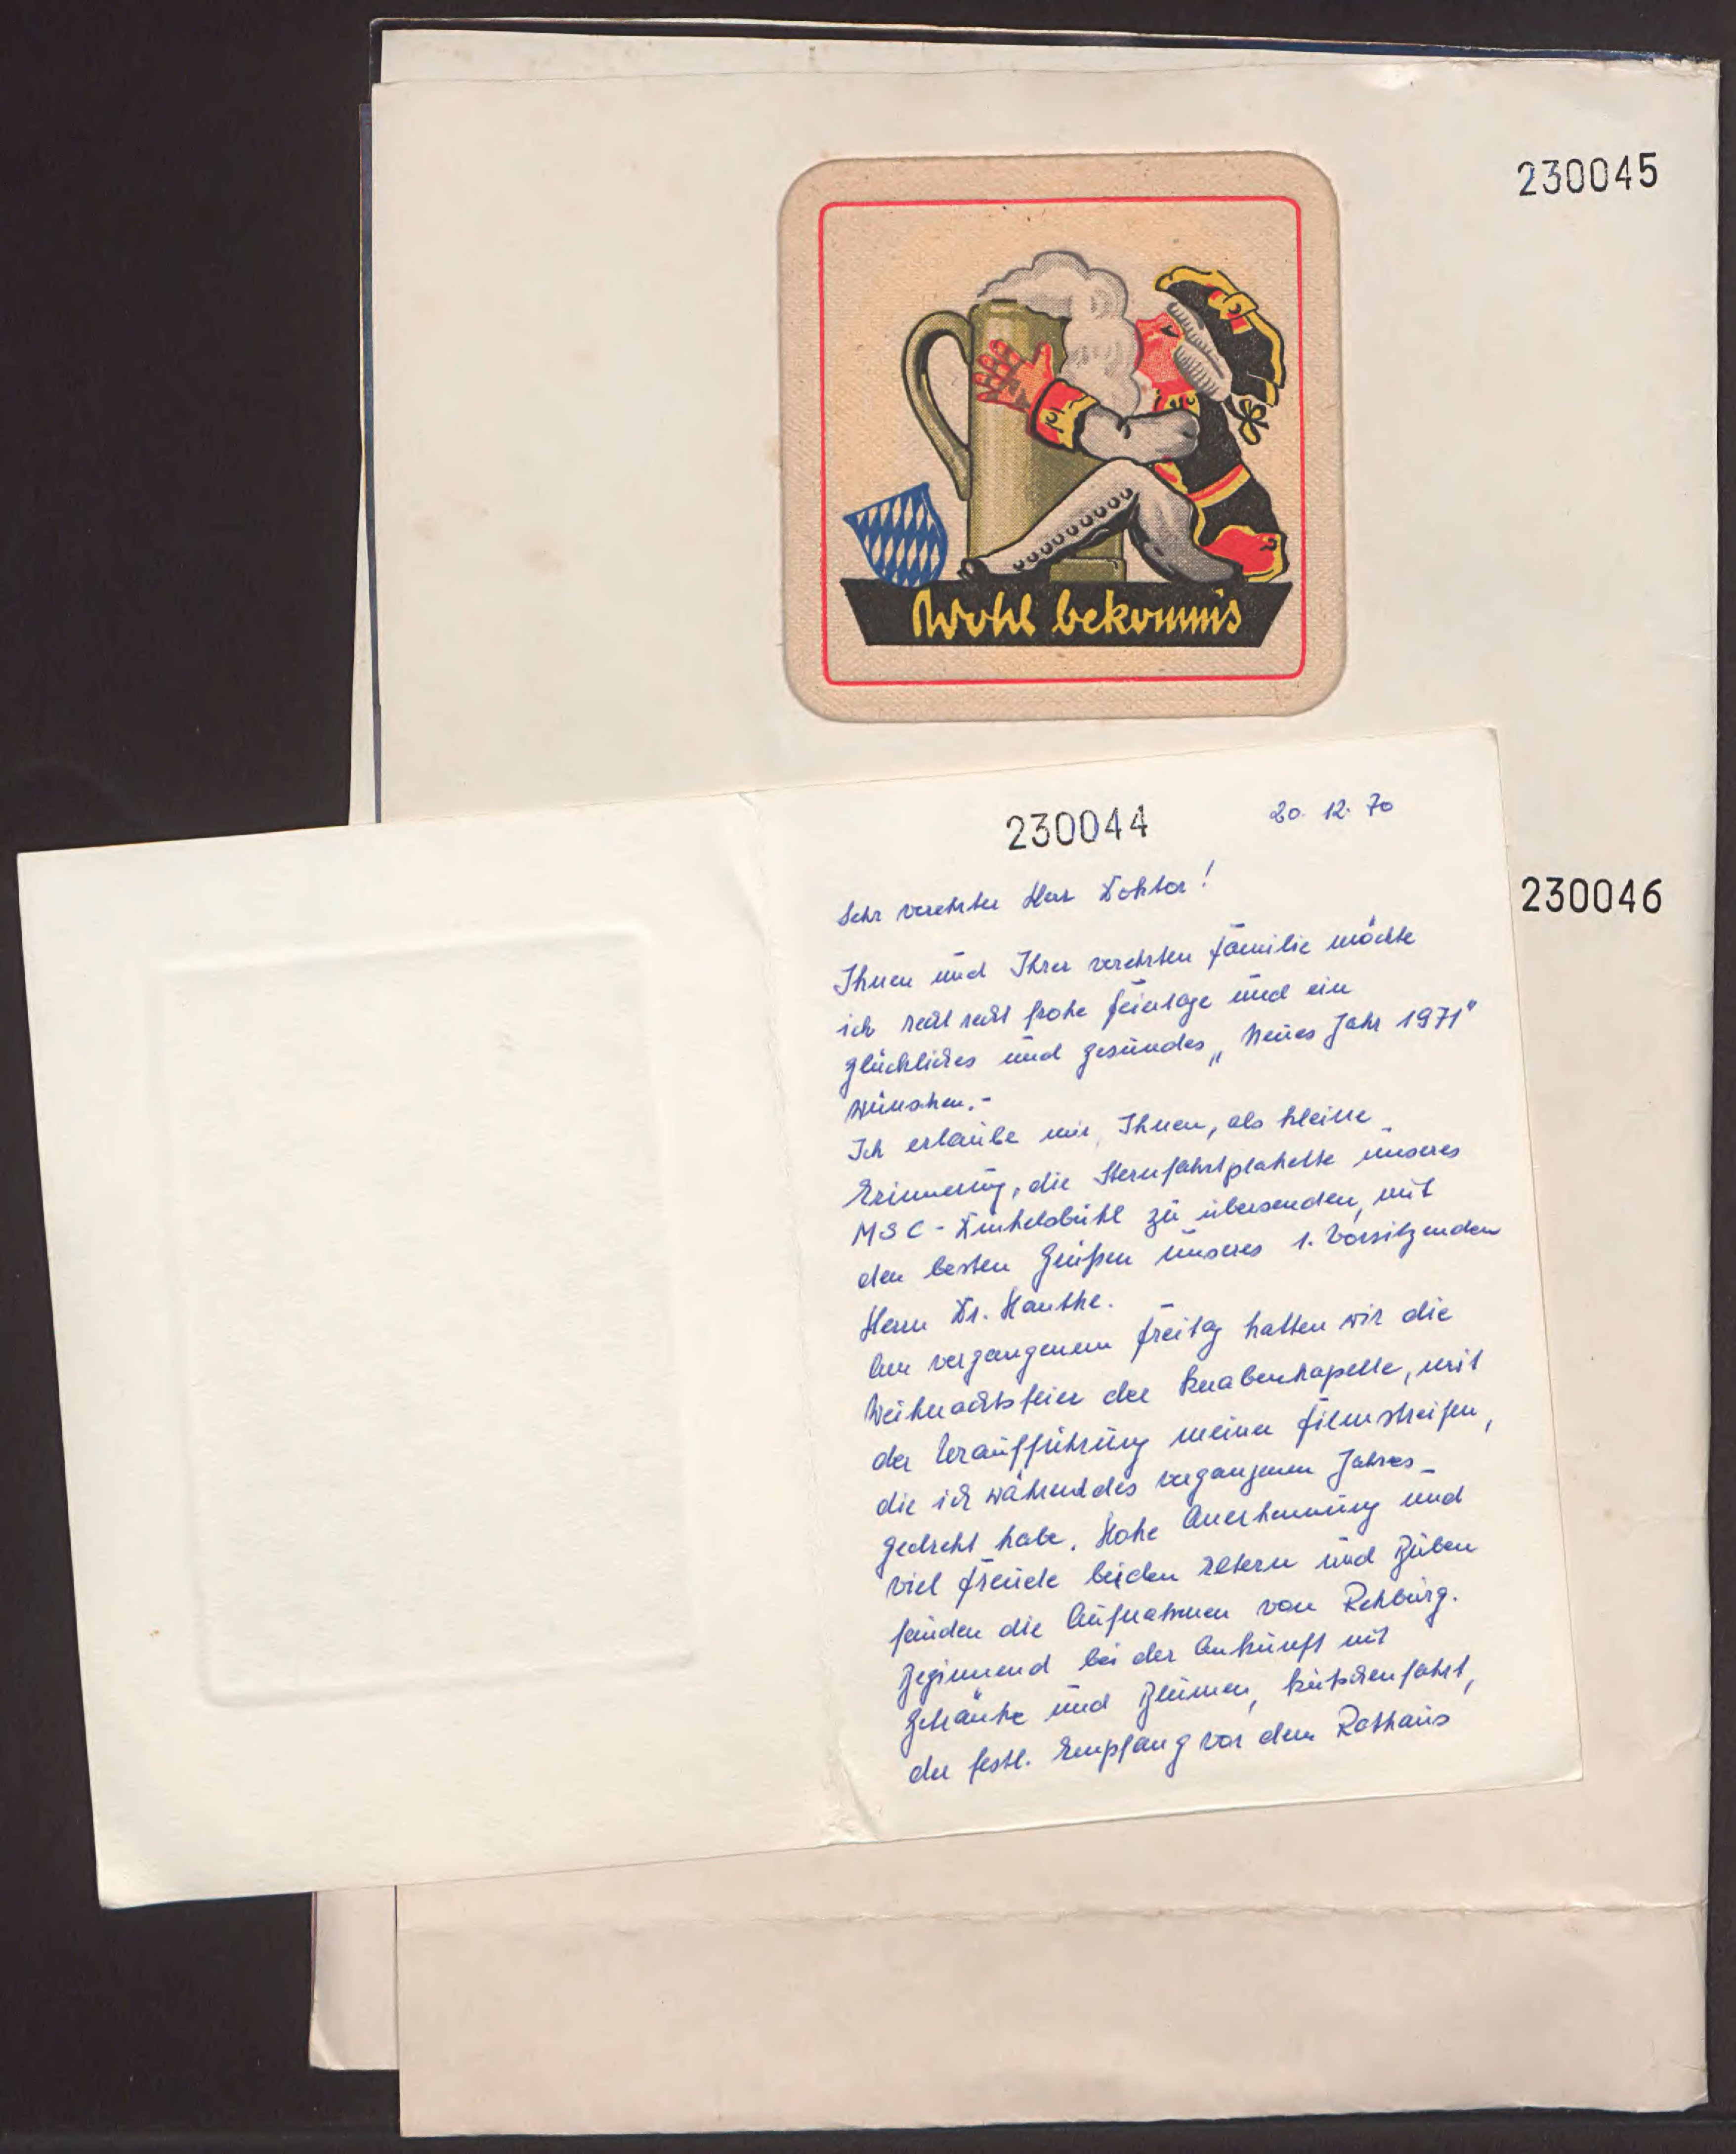 230045
Wohl bekomms
230044
20. 12. 70
Sehr verehrter Herr Doktor!
230046
Ihnen und Ihrer verehrten Familie möchte
ich recht recht frohe Feiertage und ein
glückliches und gesundes „Neues Jahr 1971"
wünschen.-
Ich erlaube mir, Ihnen, als kleine
Erinnerung, die Sternfahrtplakette unseres
MSC-Dinkelsbühl zu übersenden, mit
den besten Grüßen unseres 1. Vorsitzenden
Herrn Dr. Hauthe.
Am vergangenem Freitag hatten wir die
Weihnachtsfeier der Knabenkapelle, mit
der Uraufführung meiner Filmstreifen,
die ich während des vergangenen Jahres
gedreht habe. Hohe Anerkennung und
viel Freude bei den Eltern und Buben
fanden die Aufnahmen von Rehburg.
Beginnend bei der Ankunft mit
Getränke und Blumen, Kutschenfahrt,
der festl. Empfang vor dem Rathaus